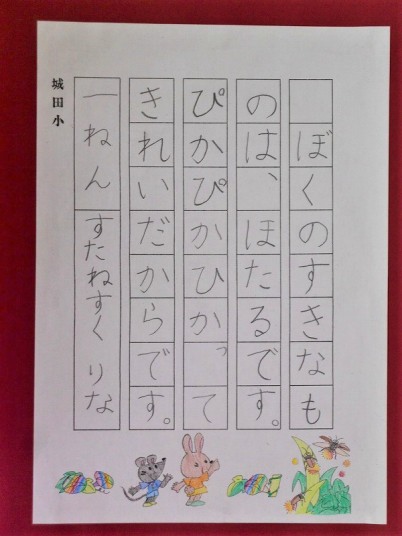 ぼくのすきなも
のは、ほたるです。
ぴかぴかひかって
きれいだからです。
一ねん すたねすく りな
城田小